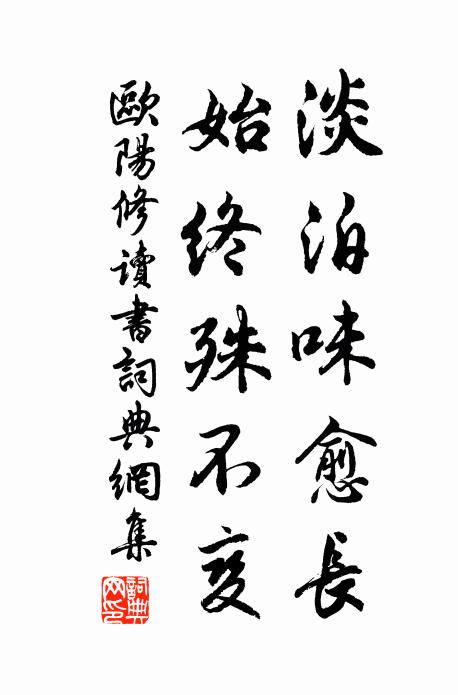 淡泊味愈長
始終殊不變
歐陽修讀書詞典網集
詞典網印